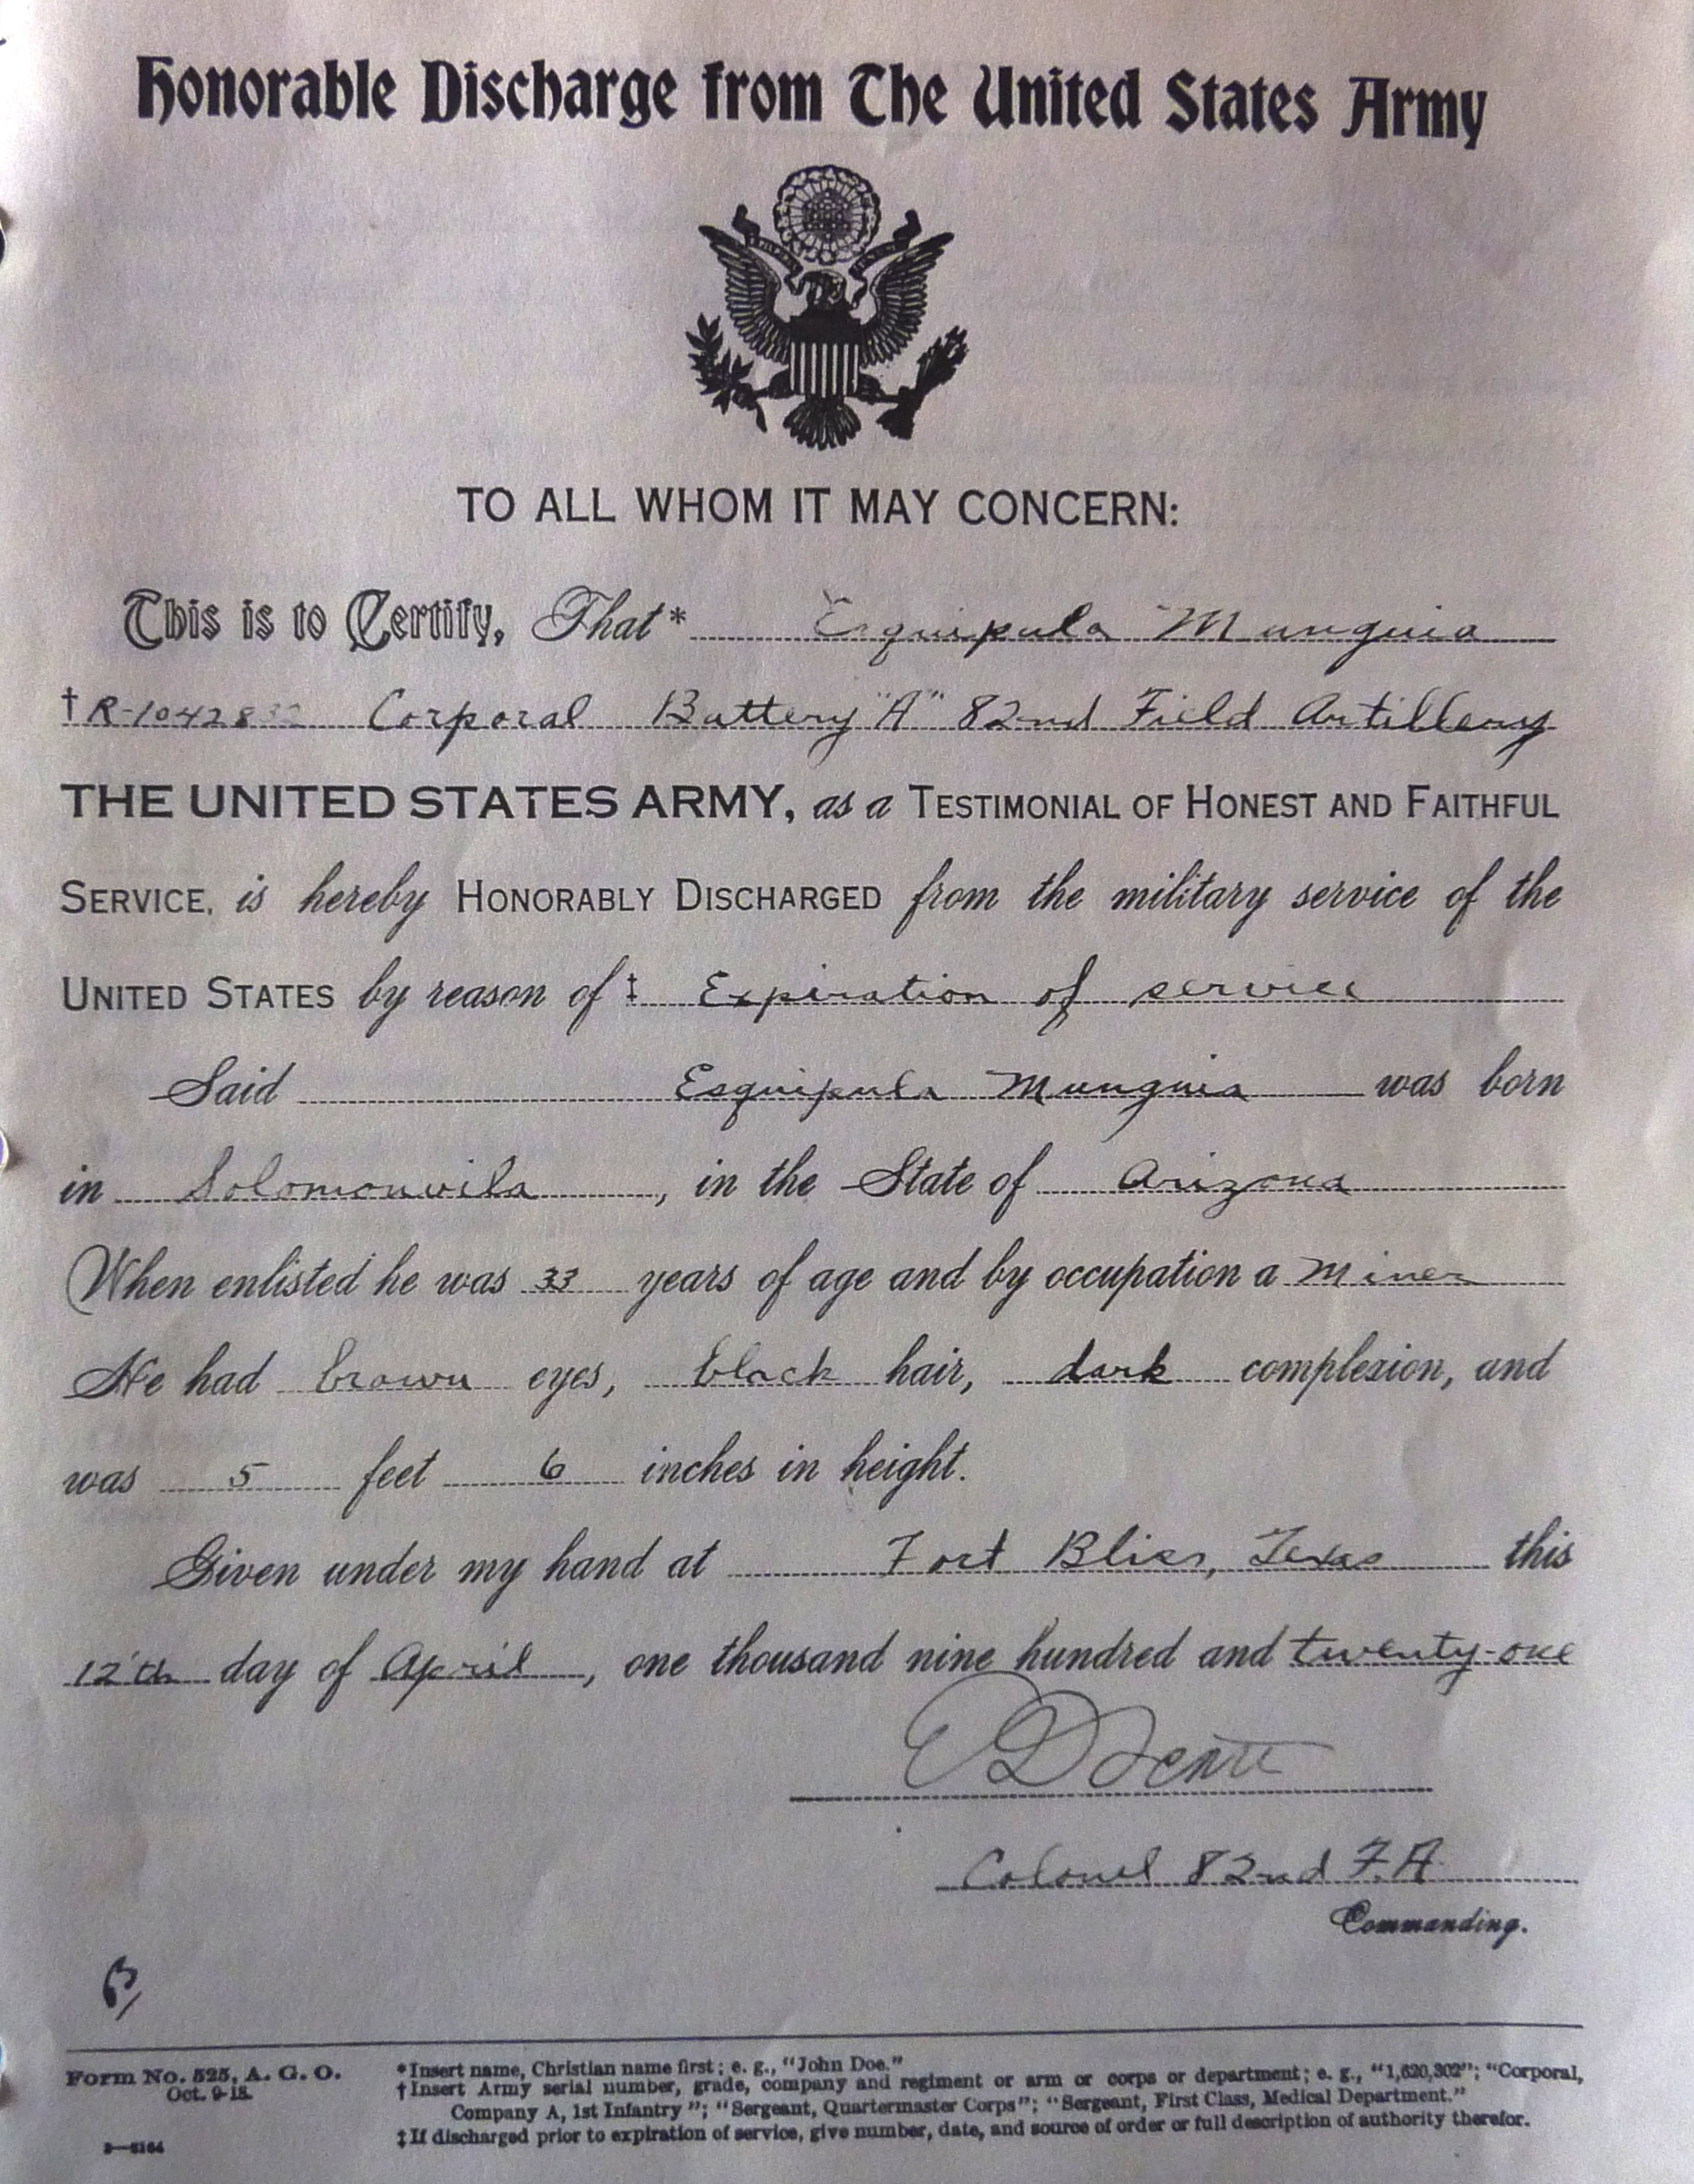 Honorable Discharge from The United States Army
TO ALL WHOM IT MAY CONCERN:
This is to Certify, That* Esquipula Munguia
† R-10428 Corporal Battery "A" 82nd Field Artillery
THE UNITED STATES ARMY, as a TESTIMONIAL OF HONEST AND FAITHFUL
SERVICE, is hereby HONORABLY DISCHARGED from the military service of the
UNITED STATES by reason of ‡ Expiration of service
Said Esquipula Munguia was born
in Solomonvila, in the State of Arizona
When enlisted he was 33 years of age and by occupation a Miner
He had brown eyes, black hair, dark complexion, and
was 5 feet 6 inches in height.
Given under my hand at Fort Bliss, Texas this
12th day of April, one thousand nine hundred and twenty-one
Colonel 82nd F.A.
Commanding.
Form No. 525, A. G. O.
Oct. 9-18.
*Insert name, Christian name first; e. g., "John Doe."
†Insert Army serial number, grade, company and regiment or arm or corps or department; e. g., "1,620,302"; "Corporal,
Company A, 1st Infantry"; "Sergeant, Quartermaster Corps"; "Sergeant, First Class, Medical Department."
‡If discharged prior to expiration of service, give number, date, and source of order or full description of authority therefor.